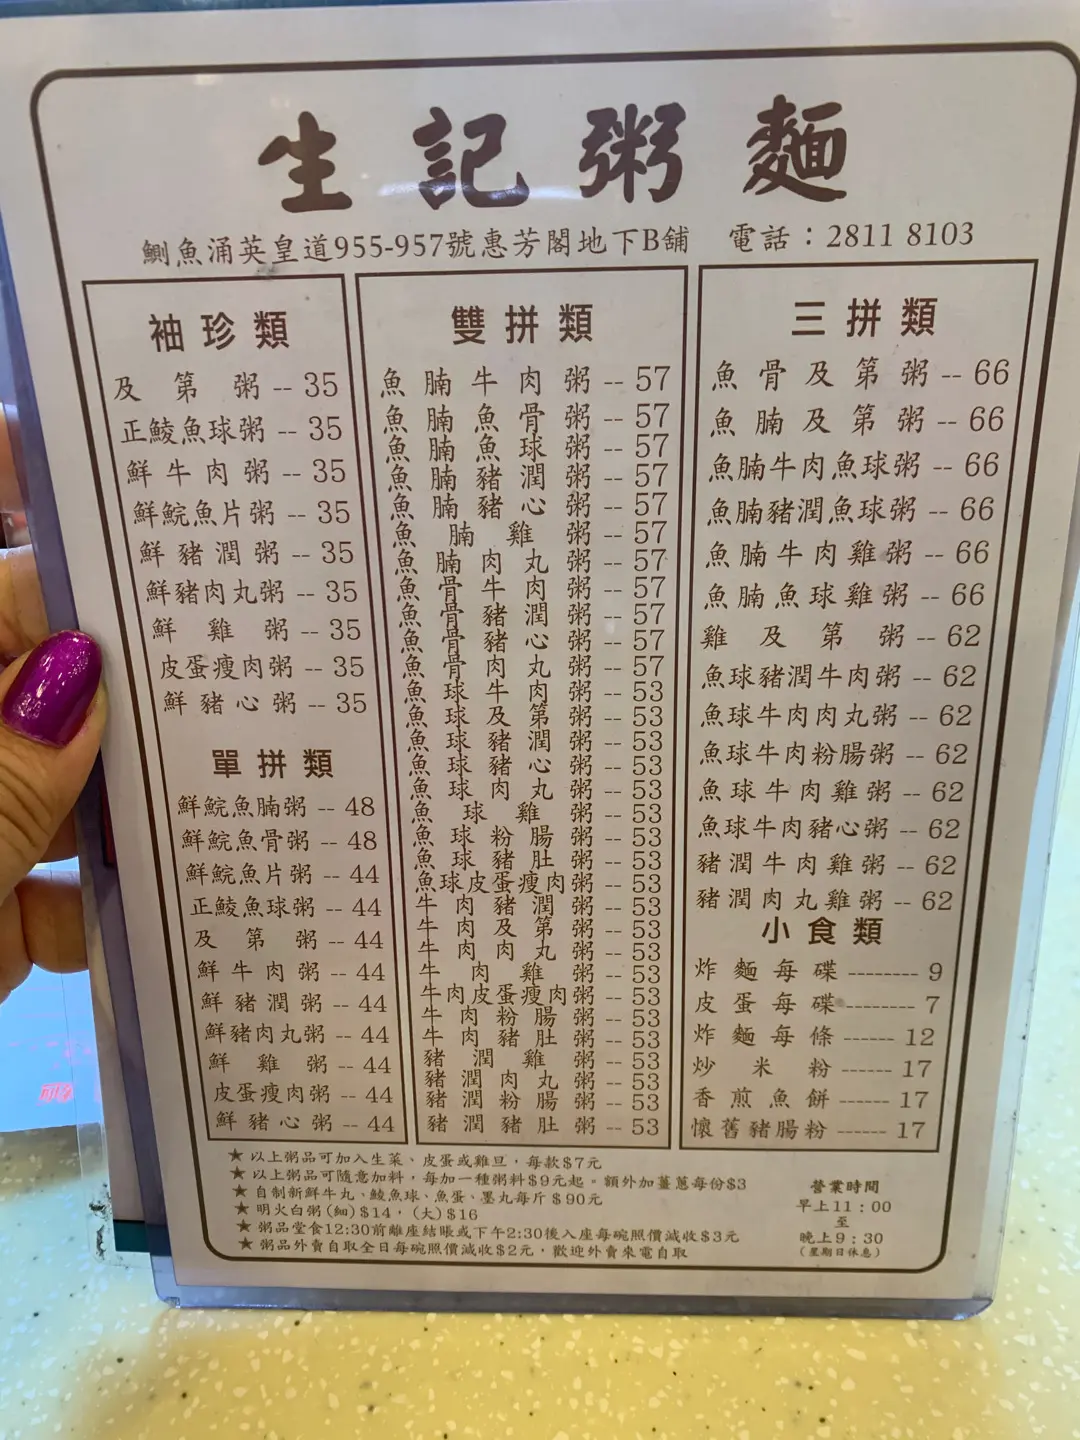 生記粥麵
鰂魚涌英皇道955-957號惠芳閣地下B舖 電話：2811 8103
袖珍類
及第粥 -- 35
正鯪魚球粥 -- 35
鮮牛肉粥 -- 35
鮮鯇魚片粥 -- 35
鮮豬潤粥 -- 35
鮮豬肉丸粥 -- 35
鮮雞粥 -- 35
皮蛋瘦肉粥 -- 35
鮮豬心粥 -- 35
單拼類
鮮鯇魚腩粥 -- 48
鮮鯇魚骨粥 -- 48
鮮鯇魚片粥 -- 44
正鯪魚球粥 -- 44
及第粥 -- 44
鮮牛肉粥 -- 44
鮮豬潤粥 -- 44
鮮豬肉丸粥 -- 44
鮮雞粥 -- 44
皮蛋瘦肉粥 -- 44
鮮豬心粥 -- 44
雙拼類
魚腩牛肉粥 -- 57
魚腩魚骨粥 -- 57
魚腩魚球粥 -- 57
魚腩豬潤粥 -- 57
魚腩豬心粥 -- 57
魚腩雞粥 -- 57
魚腩肉丸粥 -- 57
魚骨牛肉粥 -- 57
魚骨豬潤粥 -- 57
魚骨豬心粥 -- 57
魚骨肉丸粥 -- 57
魚球牛肉粥 -- 53
魚球及第粥 -- 53
魚球豬潤粥 -- 53
魚球豬心粥 -- 53
魚球肉丸粥 -- 53
魚球雞粥 -- 53
魚球粉腸粥 -- 53
魚球豬肚粥 -- 53
魚球皮蛋瘦肉粥 -- 53
牛肉豬潤粥 -- 53
牛肉及第粥 -- 53
牛肉肉丸粥 -- 53
牛肉雞粥 -- 53
牛肉皮蛋瘦肉粥 -- 53
牛肉粉腸粥 -- 53
牛肉豬肚粥 -- 53
豬潤雞粥 -- 53
豬潤肉丸粥 -- 53
豬潤粉腸粥 -- 53
豬潤豬肚粥 -- 53
三拼類
魚骨及第粥 -- 66
魚腩及第粥 -- 66
魚腩牛肉魚球粥 -- 66
魚腩豬潤魚球粥 -- 66
魚腩牛肉雞粥 -- 66
魚腩魚球雞粥 -- 66
雞及第粥 -- 62
魚球豬潤牛肉粥 -- 62
魚球牛肉肉丸粥 -- 62
魚球牛肉粉腸粥 -- 62
魚球牛肉雞粥 -- 62
魚球牛肉豬心粥 -- 62
豬潤牛肉雞粥 -- 62
豬潤肉丸雞粥 -- 62
小食類
炸麵每碟 -------- 9
皮蛋每碟 -------- 7
炸麵每條 ------ 12
炒米粉 ------ 17
香煎魚餅 ------ 17
懷舊豬腸粉 ------ 17
★ 以上粥品可加入生菜、皮蛋或雞旦，每款$7元
★ 以上粥品可隨意加料，每加一種粥料$9元起。額外加薑蔥每份$3
★ 自制新鮮牛丸、鯪魚球、魚蛋、墨丸每斤$90元
★ 明火白粥(細)$14，(大)$16
★ 粥品堂食12:30前離座結賬或下午2:30後入座每碗照價減收$3元
★ 粥品外賣自取全日每碗照價減收$2元，歡迎外賣來電自取
營業時間
早上11：00
至
晚上9：30
(星期日休息)